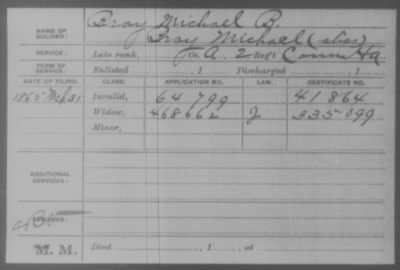 NAME OF SOLDIER: Bray Michael B.
Bray Michael (alias)
SERVICE: Late rank, Co. A, 2 Reg't Conn HA
TERM OF SERVICE: Enlisted , 1 Discharged , 1
DATE OF FILING. CLASS. APPLICATION NO. LAW. CERTIFICATE NO.
1865 31 Invalid, 64799 41864
Widow, 468662 J 335099
Minor,
ADDITIONAL SERVICES:
REMARKS:
M. M. Died , 1 , at